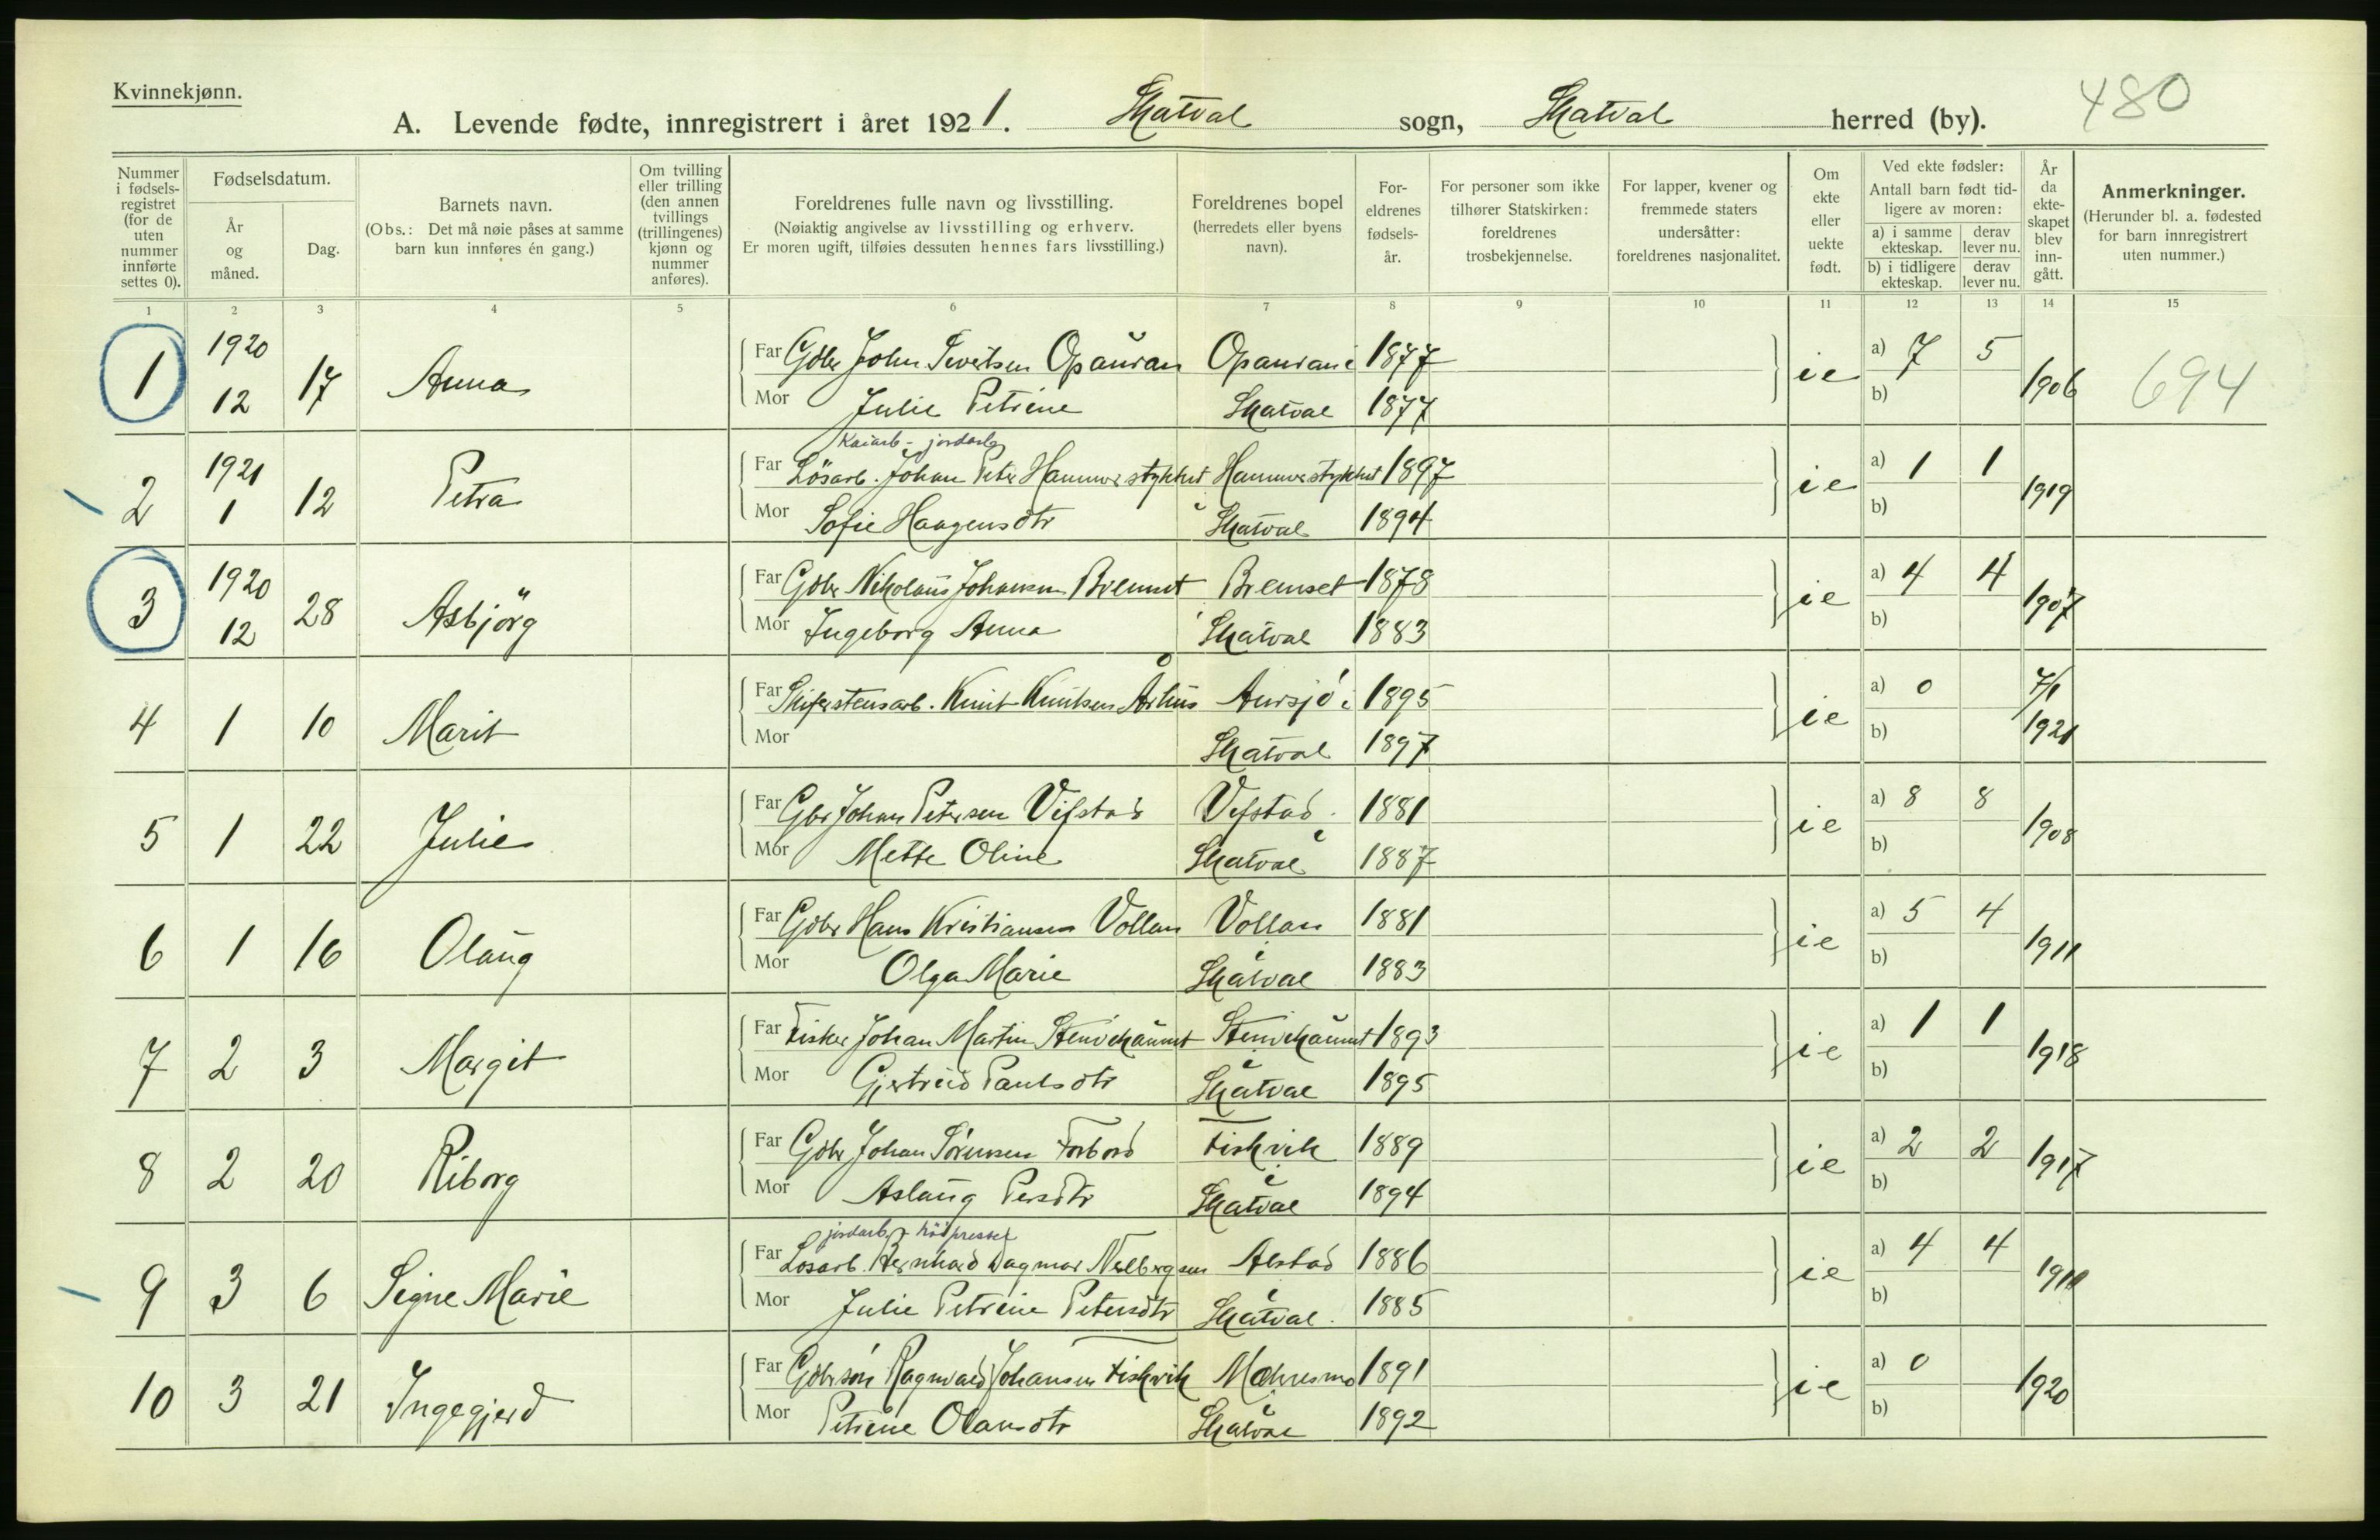 Kvinnekjønn.
480
A. Levende fødte, innregistrert i året 1921. Skatval sogn, Skatval herred (by).
Nummer i fødsels-registret (for de uten nummer innførte settes 0).
Fødselsdatum.
År og måned.
Dag.
Barnets navn.
(Obs.: Det må nøie påses at samme barn kun innføres én gang.)
Om tvilling eller trilling (den annen tvillings (trillingenes) kjønn og nummer anføres).
Foreldrenes fulle navn og livsstilling.
(Nøiaktig angivelse av livsstilling og erhverv.
Er moren ugift, tilføies dessuten hennes fars livsstilling.)
Foreldrenes bopel (herredets eller byens navn).
For-eldrenes fødsels-år.
For personer som ikke tilhører Statskirken: foreldrenes trosbekjennelse.
For lapper, kvener og fremmede staters undersåtter: foreldrenes nasjonalitet.
Om ekte eller uekte født.
Ved ekte fødsler:
Antall barn født tid-ligere av moren:
a) i samme ekteskap.
derav lever nu.
b) i tidligere ekteskap.
derav lever nu.
År da ekte-skapet blev inn-gått.
Anmerkninger.
(Herunder bl. a. fødested for barn innregistrert uten nummer.)
1 2 3 4 5 6 7 8 9 10 11 12 13 14 15
1 1920 12 17 Anna
Far Gbr John Sivertsen Opauran Opauran i 1877 ie a) 7 5 1906 694
Mor Julie Petrine Skatval 1877 b)
Kaiarb - jordarb
2 1921 1 12 Petra
Far Lösarb. Johan Peter Hammerstykket Hammerstykket 1897 ie a) 1 1 1919
Mor Sofie Haagensdtr i Skatval 1894 b)
3 1920 12 28 Asbjörg
Far Gbr Nikolaus Johansen Bremset Bremset 1878 ie a) 4 4 1907
Mor Ingeborg Anna i Skatval 1883 b)
4 1 10 Marit
Far Skiferstensarb. Knut Knutsen Århus Aursjö i 1895 ie a) 0 7/1 1921
Mor Skatval 1897 b)
5 1 22 Julie
Far Gbr Johan Petersen Vifstad Vifstad i 1881 ie a) 8 8 1908
Mor Mette Oline Skatval 1887 b)
6 1 16 Olaug
Far Gbr Hans Kristiansen Vollan Vollan i 1881 ie a) 5 4 1911
Mor Olga Marie Skatval 1883 b)
7 2 3 Margit
Far Fisker Johan Martin Stenvikaunet Stenvikaunet i 1893 ie a) 1 1 1918
Mor Gjertrud Paulsdtr Skatval 1895 b)
8 2 20 Riborg
Far Gbr Johan Sörensen Forbord Fiskvik i 1889 ie a) 2 2 1917
Mor Aslaug Persdtr Skatval 1894 b)
jordarb. höipresser
9 3 6 Signe Marie
Far Losarb. Bernhard Dagmar Alstad i 1886 ie a) 4 4
Mor Julie Petrine Petersdtr Skatval. 1885 b)
10 3 21 Ingegjerd
Far Gbrsön Ragnvald Johansen Fiskvik i 1891 ie a) 0 1920
Mor Petrine Olausdtr Skatval 1892 b)